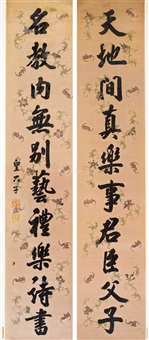 天地間真樂事君臣父子
名教内無別藝禮樂詩書
皇六子